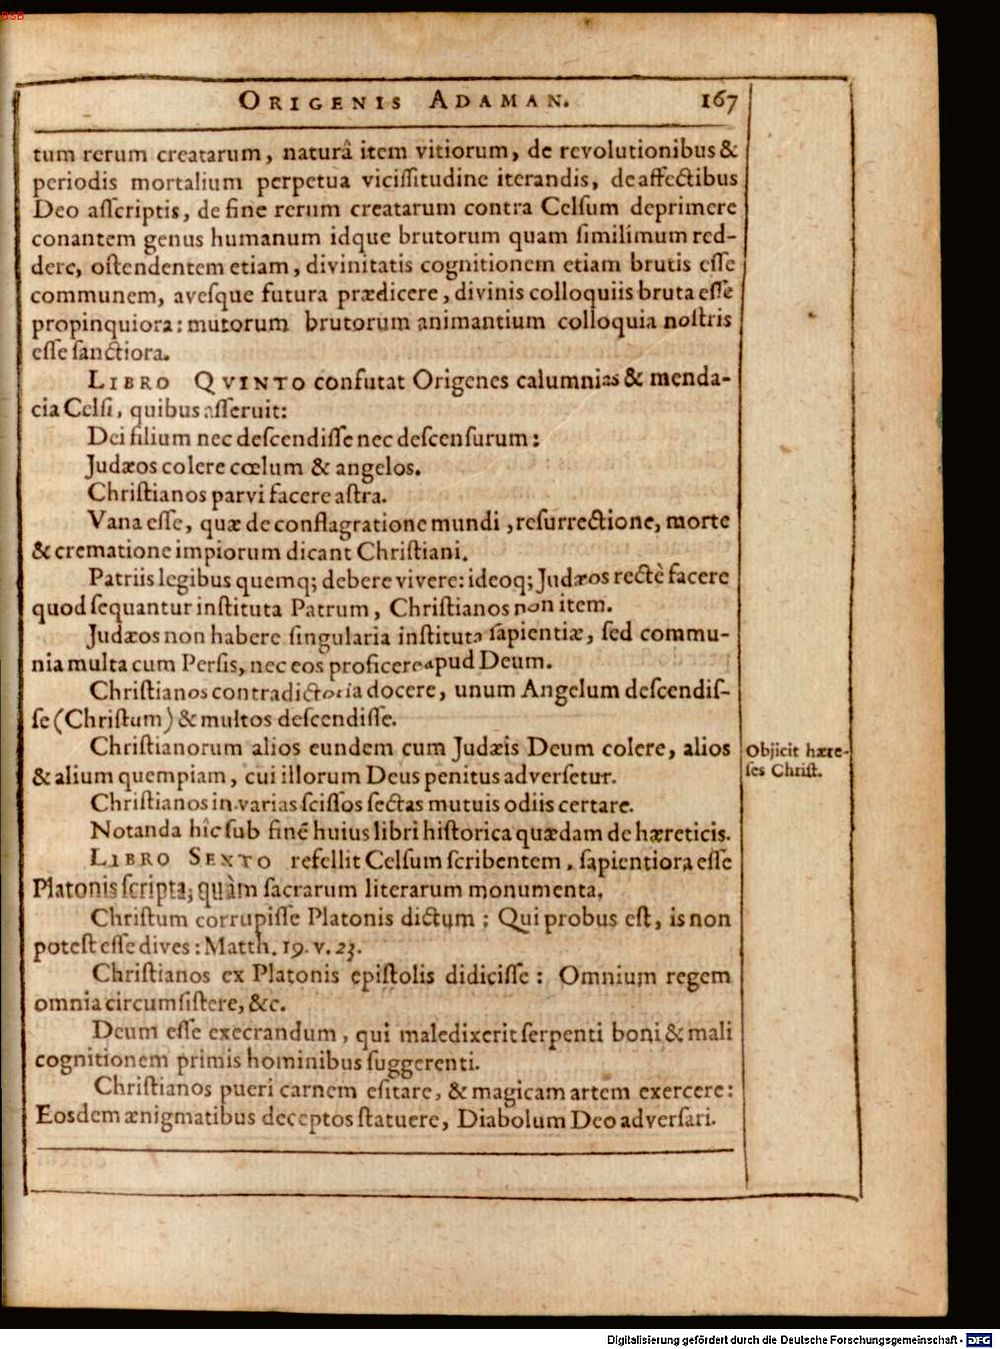 BSB
ORIGENIS ADAMAN. 167
tum rerum creatarum, naturâ item vitiorum, de revolutionibus &
periodis mortalium perpetua vicissitudine iterandis, de affectibus
Deo asscriptis, de fine rerum creatarum contra Celsum deprimere
conantem genus humanum idque brutorum quam similimum red-
dere, ostendentem etiam, divinitatis cognitionem etiam brutis esse
communem, avesque futura prædicere, divinis colloquiis bruta esse
propinquiora: mutorum brutorum animantium colloquia nostris
esse sanctiora.
LIBRO QVINTO confutat Origenes calumnias & menda-
cia Celsi, quibus asseruit:
Dei filium nec descendisse nec descensurum:
Judæos colere cœlum & angelos.
Christianos parvi facere astra.
Vana esse, quæ de conflagratione mundi, resurrectione, morte
& crematione impiorum dicant Christiani.
Patriis legibus quemq; debere vivere: ideoq; Judæos rectè facere
quod sequantur instituta Patrum, Christianos non item.
Judæos non habere singularia instituta sapientiæ, sed commu-
nia multa cum Persis, nec eos proficere apud Deum.
Christianos contradictoria docere, unum Angelum descendis-
se (Christum) & multos descendisse.
Christianorum alios eundem cum Judæis Deum colere, alios
& alium quempiam, cui illorum Deus penitus adversetur.
Objicit hære-
ses Christ.
Christianos in varias scissos sectas mutuis odiis certare.
Notanda hîc sub finē huius libri historica quædam de hæreticis.
LIBRO SEXTO refellit Celsum scribentem, sapientiora esse
Platonis scripta, quàm sacrarum literarum monumenta.
Christum corrupisse Platonis dictum: Qui probus est, is non
potest esse dives: Matth. 19. v. 23.
Christianos ex Platonis epistolis didicisse: Omnium regem
omnia circumsistere, &c.
Deum esse execrandum, qui maledixerit serpenti boni & mali
cognitionem primis hominibus suggerenti.
Christianos pueri carnem esitare, & magicam artem exercere:
Eosdem ænigmatibus deceptos statuere, Diabolum Deo adversari.
Digitalisierung gefördert durch die Deutsche Forschungsgemeinschaft - DFG